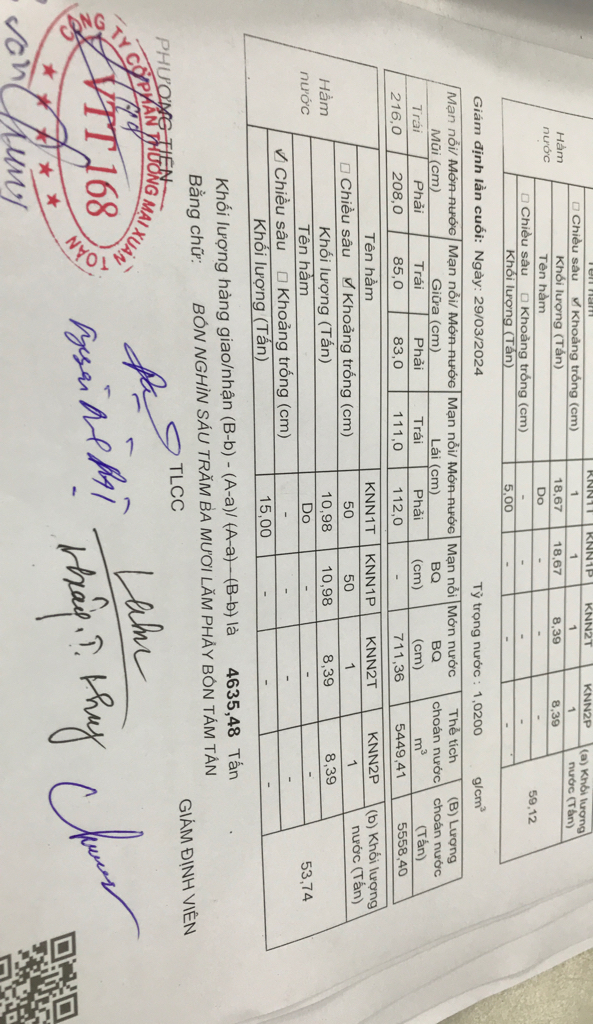 Tên hầm KNN1T KNN1P KNN2T KNN2P (a) Khối lượng nước (Tấn)
Hầm nước
☐ Chiều sâu ☑ Khoảng trống (cm) 1 1 1 1
Khối lượng (Tấn) 18,67 18,67 8,39 8,39 59,12
Tên hầm Do - - -
☐ Chiều sâu ☐ Khoảng trống (cm) - - - -
Khối lượng (Tấn) 5,00 - - -
Giám định lần cuối: Ngày: 29/03/2024 Tỷ trọng nước : 1,0200 g/cm³
Mạn nổi/ Mớn nước Mũi (cm) Mạn nổi/ Mớn nước Giữa (cm) Mạn nổi/ Mớn nước Lái (cm) Mạn nổi BQ (cm) Mớn nước BQ (cm) Thể tích choán nước m³ (B) Lượng choán nước (Tấn)
Trái Phải Trái Phải Trái Phải
216,0 208,0 85,0 83,0 111,0 112,0 - 711,36 5449,41 5558,40
Tên hầm KNN1T KNN1P KNN2T KNN2P (b) Khối lượng nước (Tấn)
Hầm nước
☐ Chiều sâu ☑ Khoảng trống (cm) 50 50 1 1
Khối lượng (Tấn) 10,98 10,98 8,39 8,39 53,74
Tên hầm Do - - -
☑ Chiều sâu ☐ Khoảng trống (cm) - - - -
Khối lượng (Tấn) 15,00 - - -
Khối lượng hàng giao/nhận (B-b) - (A-a)/ (A-a) - (B-b) là 4635,48 Tấn
Bằng chữ: BỐN NGHÌN SÁU TRĂM BA MƯƠI LĂM PHẨY BỐN TÁM TẤN
PHƯƠNG TIỆN TLCC GIÁM ĐỊNH VIÊN
CÔNG TY CỔ PHẦN THƯƠNG MẠI XUÂN TOÀN
VTT 168